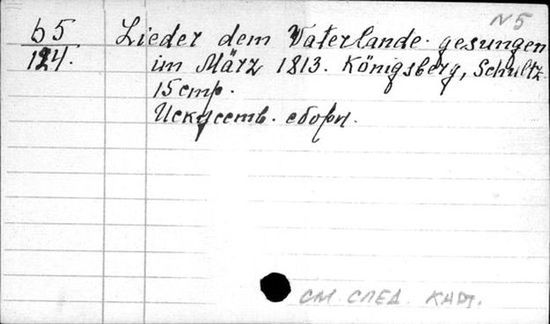 N 5
б5 Lieder dem Vaterlande gesungen
124. im März 1813. Königsberg, Schultz.
15 стр.
Искусств. сборн.
СМ. СЛЕД. КАРТ.